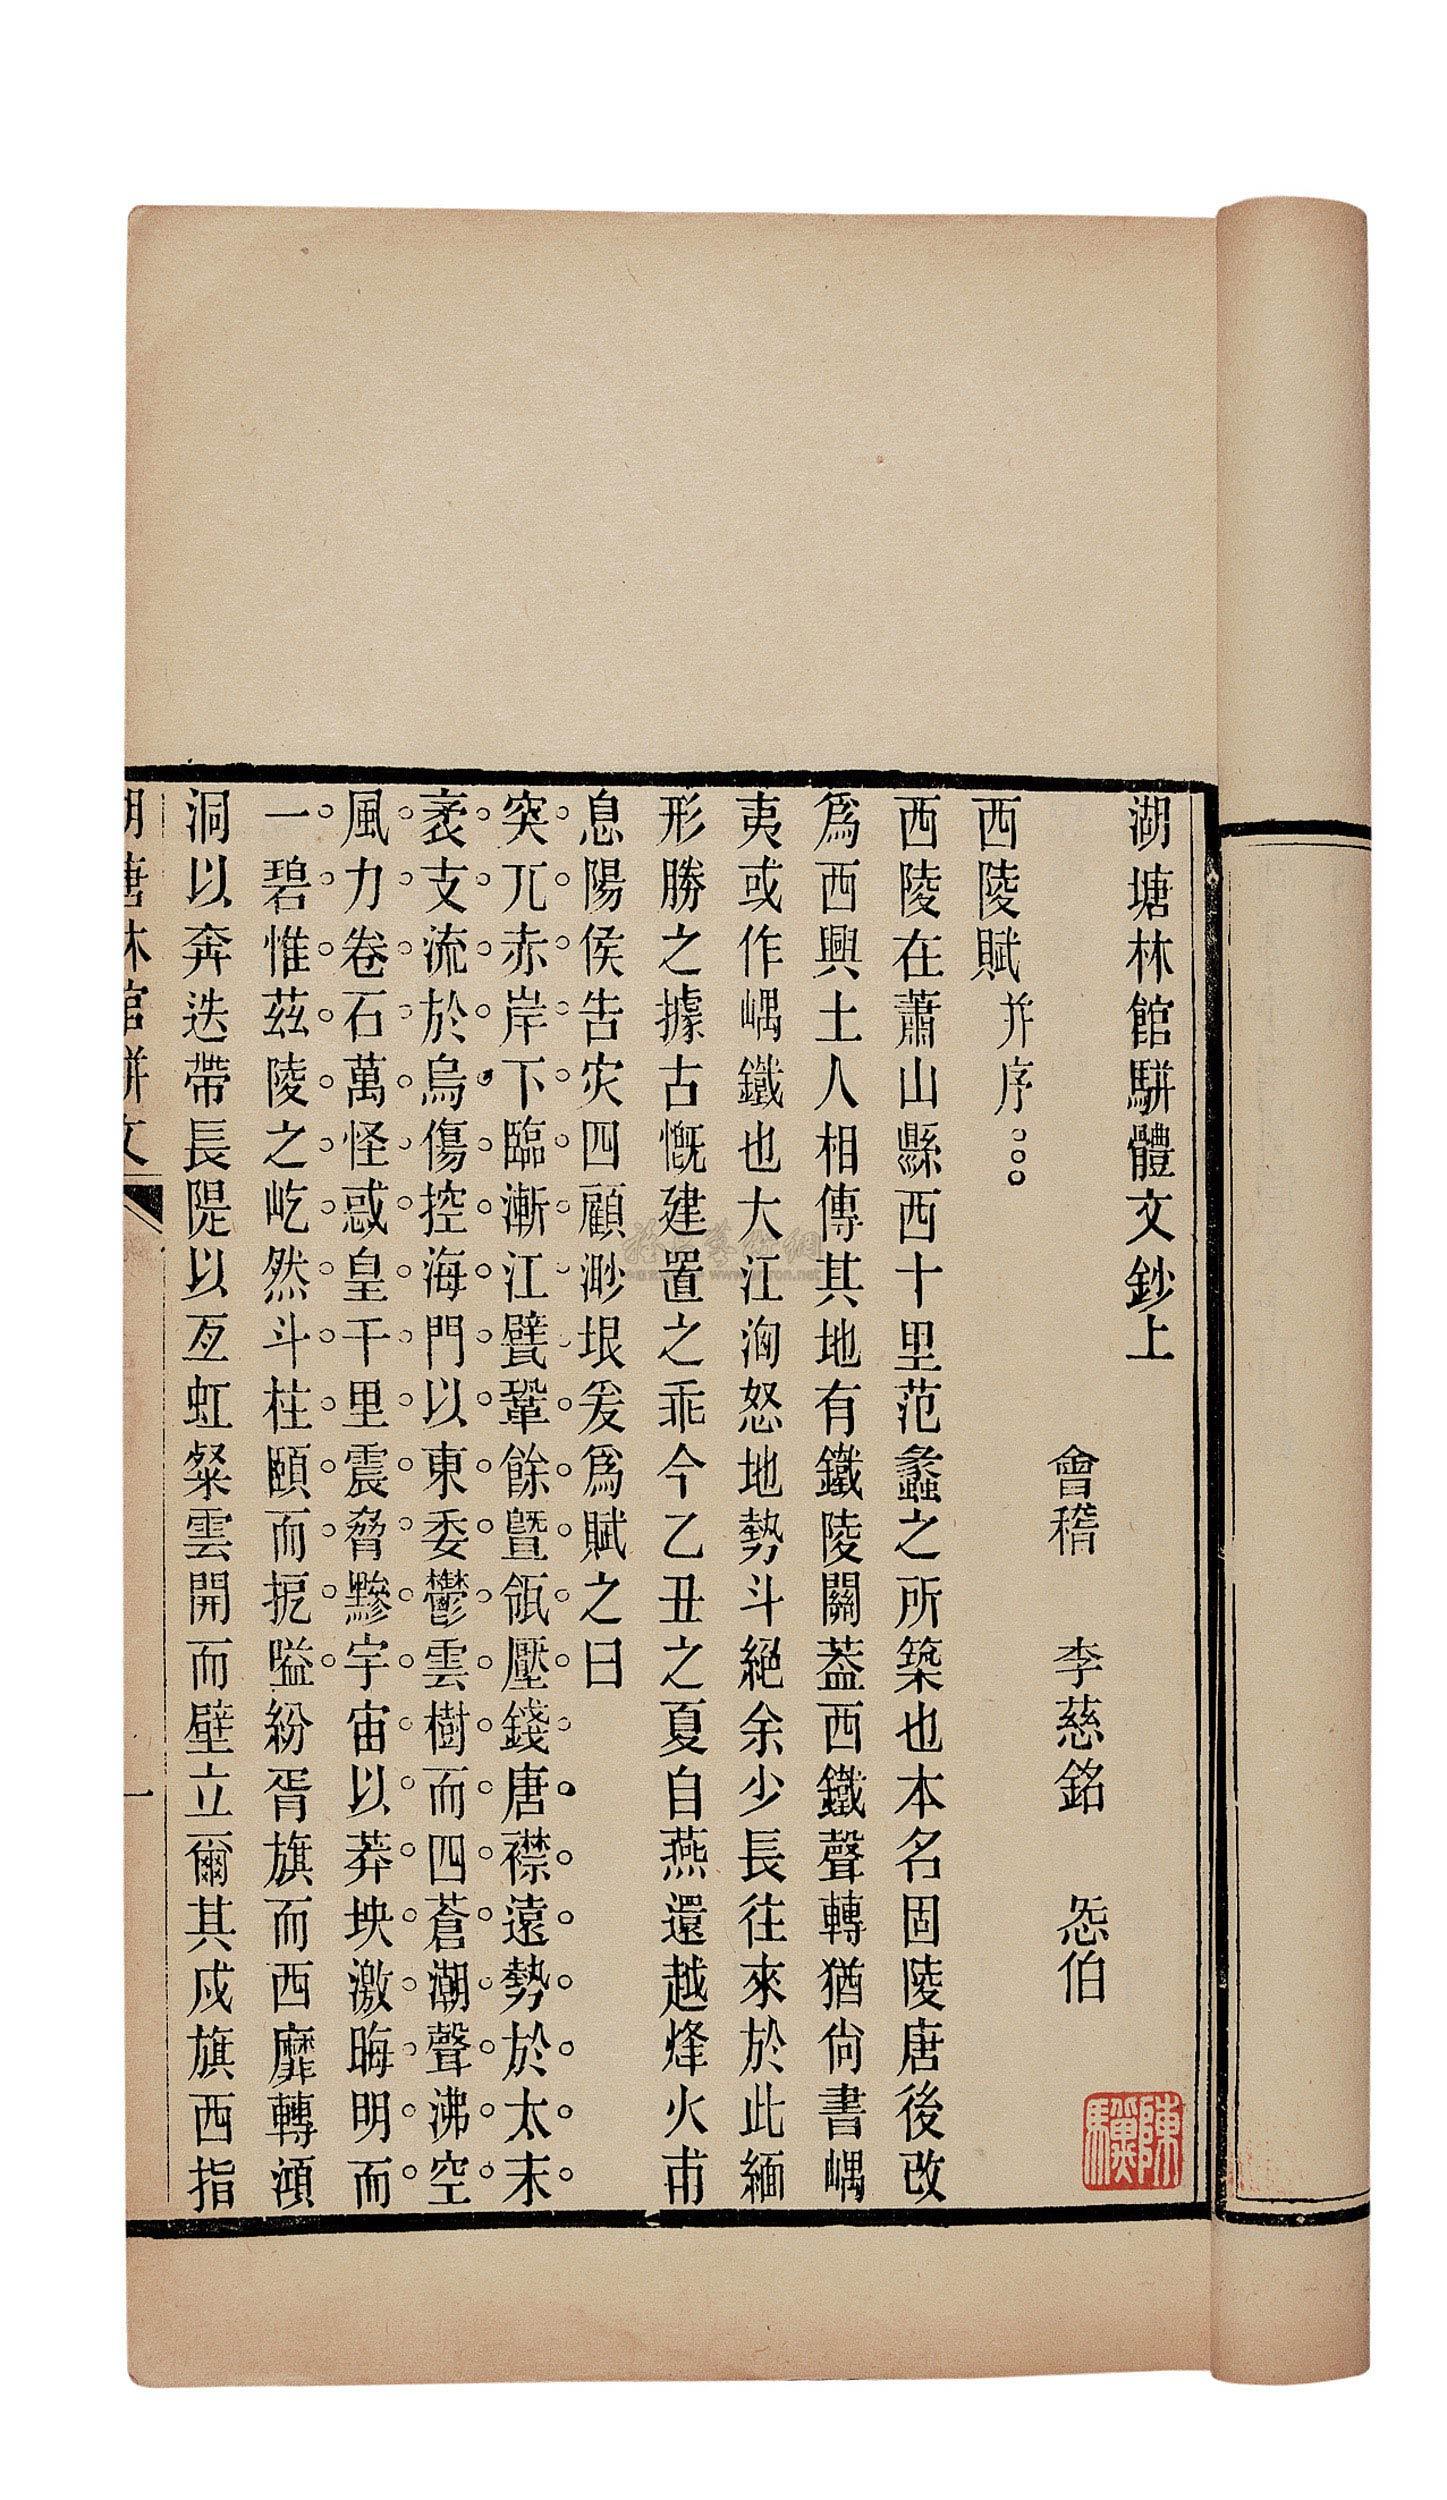 湖塘林館駢體文鈔上
會稽 李慈銘 㤅伯
西陵賦并序
西陵在蕭山縣西十里范蠡之所築也本名固陵唐後改
爲西興土人相傳其地有鐵陵關葢西鐵聲轉猶尙書嵎
夷或作嵎鐵也大江洶怒地勢斗絕余少長往來於此緬
形勝之據古慨建置之乖今乙丑之夏自燕還越烽火甫
息陽侯告灾四顧渺垠爰爲賦之曰
突兀赤岸下臨漸江甓鞏餘曁瓴壓錢唐襟遠勢於太末
袤支流於烏傷控海門以東委鬱雲樹而四蒼潮聲沸空
風力卷石萬怪惑皇千里震脅黲宇宙以莽坱激晦明而
一碧惟茲陵之屹然斗柱頤而扼嗌紛胥旗而西靡轉澒
洞以奔迭帶長隄以亙虹粲雲開而壁立爾其戍旗西指
湖塘林館駢文
一
陳驥
www.artron.net